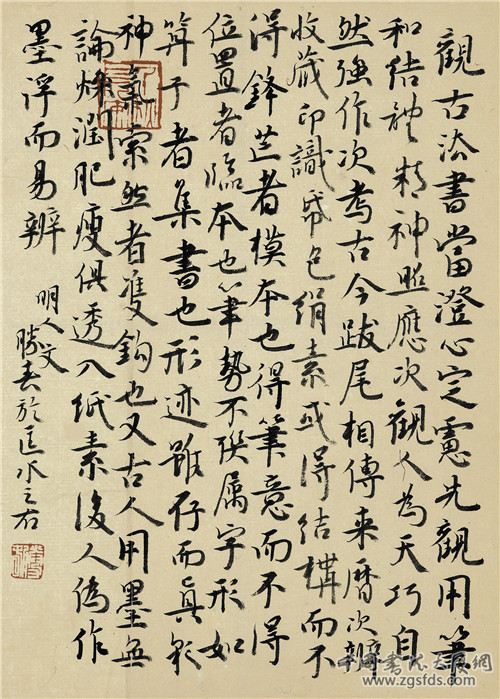 觀古法書當澄心定慮先觀用筆
和结體精神照應次觀人為天巧自
然強作次考古今跋尾相傳来曆次辨
收藏印識帋色绢素或得结構而不
得鋒芒者模本也得筆意而不得
位置者臨本也筆勢不聫属字形如
筭子者集書也形迹雖存而真彩
神氣索然者雙鈎也又古人用墨無
論燥潤肥瘦俱透入紙素後人偽作
墨浮而易辨
明人文
於匡水之右
中国书法大展网
www.zgsfds.com